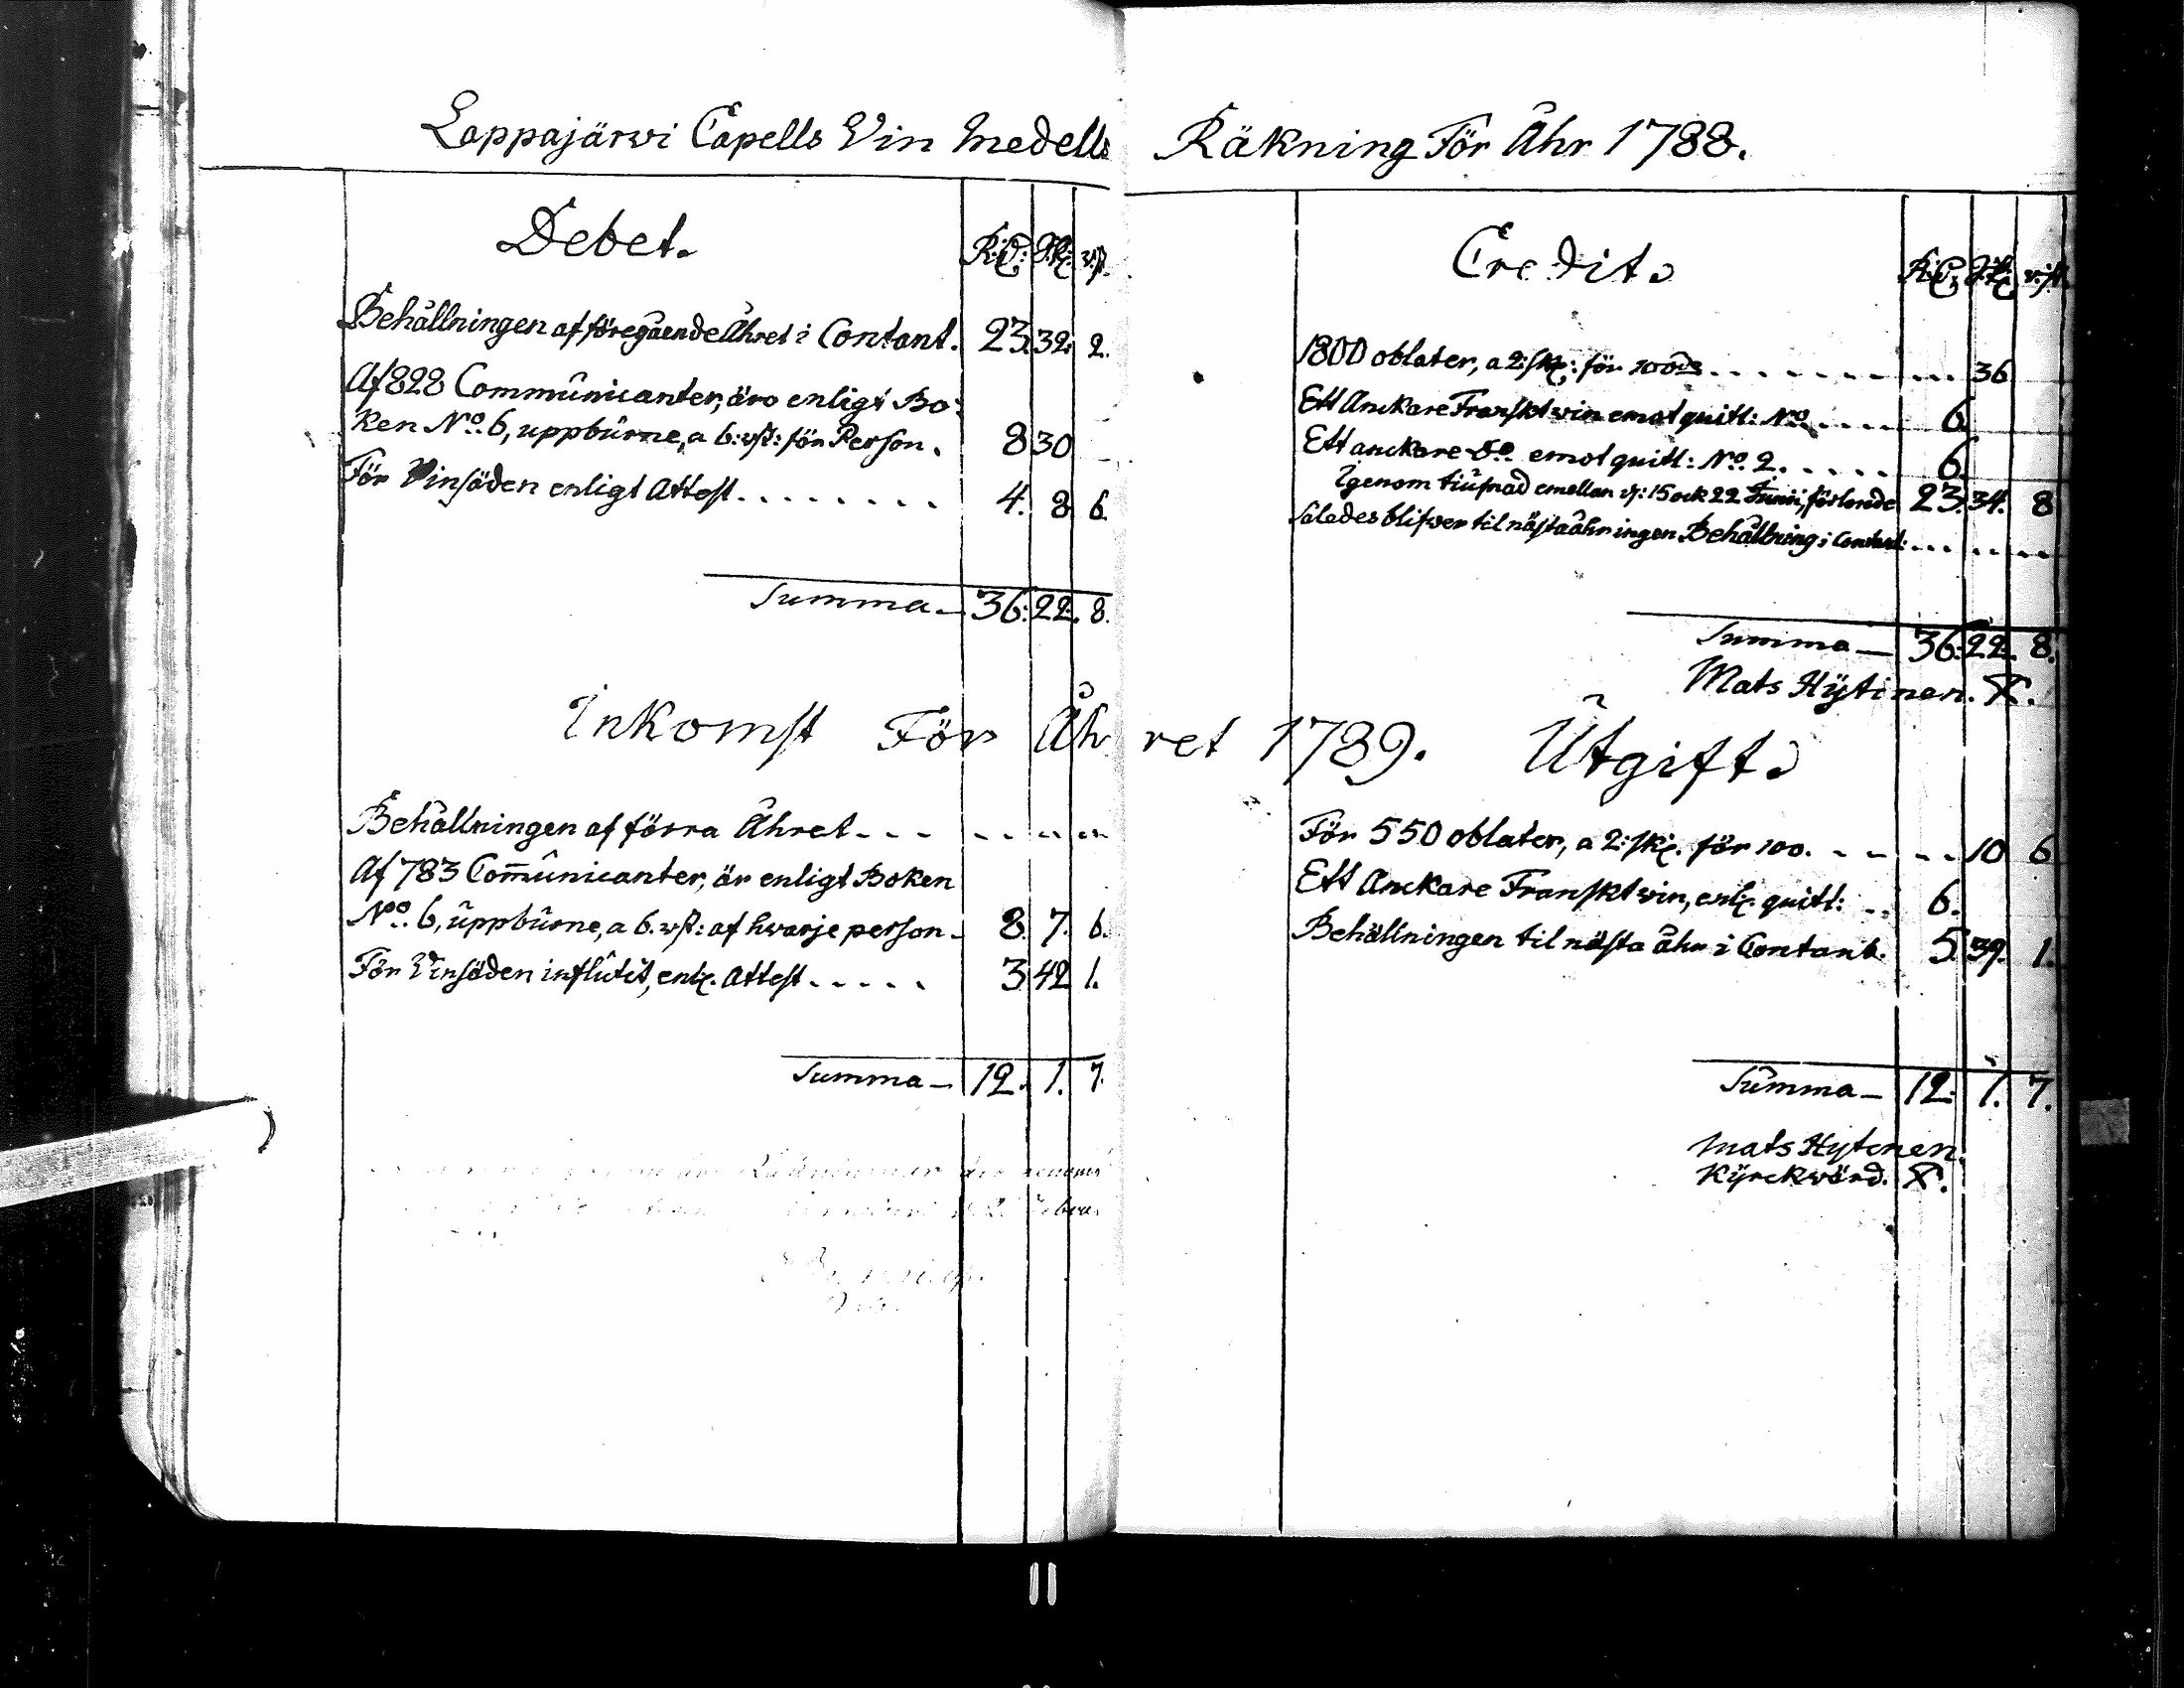 Lappajärvi Capells Vin Medells Räkning För Åhr 1788.
Debet. R:D: Sk: rst.
Behållningen af föregåendeÅhret i Contant. 23. 32. 2.
Af 828 Communicanter, äro enligt Bo-
ken No. 6, uppburne, a 6: rst: för Person. 8 30
För Vinsäden enligt Attest......... 4. 8 6.
Summa— 36: 22. 8.
Credit. R:D: Sk: rst.
1800 oblater, a 2: sk: för 100de ......... 36
Ett Anckare Franskt vin emot quitt: No ..... 6.
Ett anckare do. emot quitt: No. 2. ..... 6.
Igenom tiufnad emellan d: 15 ock 22 Junii, förlorade 23. 34. 8
Således blifver til nästa åhr ingen Behållning i Contant: .......
Summa— 36: 22. 8.
Mats Hÿtinen. X.
Inkomst För Åhret 1789. Utgift.
Behållningen af förra Åhret - - - - - - -
Af 783 Com̄unicanter, är enligt Boken
No. 6, uppburne, a 6. rst: af hvarje person - 8. 7. 6.
För Vinsäden influtit, enl. Attest..... 3 42 1.
Summa— 12. 1. 7.
För 550 oblater, a 2: sk. för 100. - - - - - 10 6
Ett Anckare Franskt vin, enl. quitt: .. 6.
Behållningen til nästa åhr i Contant. 5. 39. 1.
Summa— 12: 1. 7.
Mats Hytenen.
Kÿrckvärd. X.